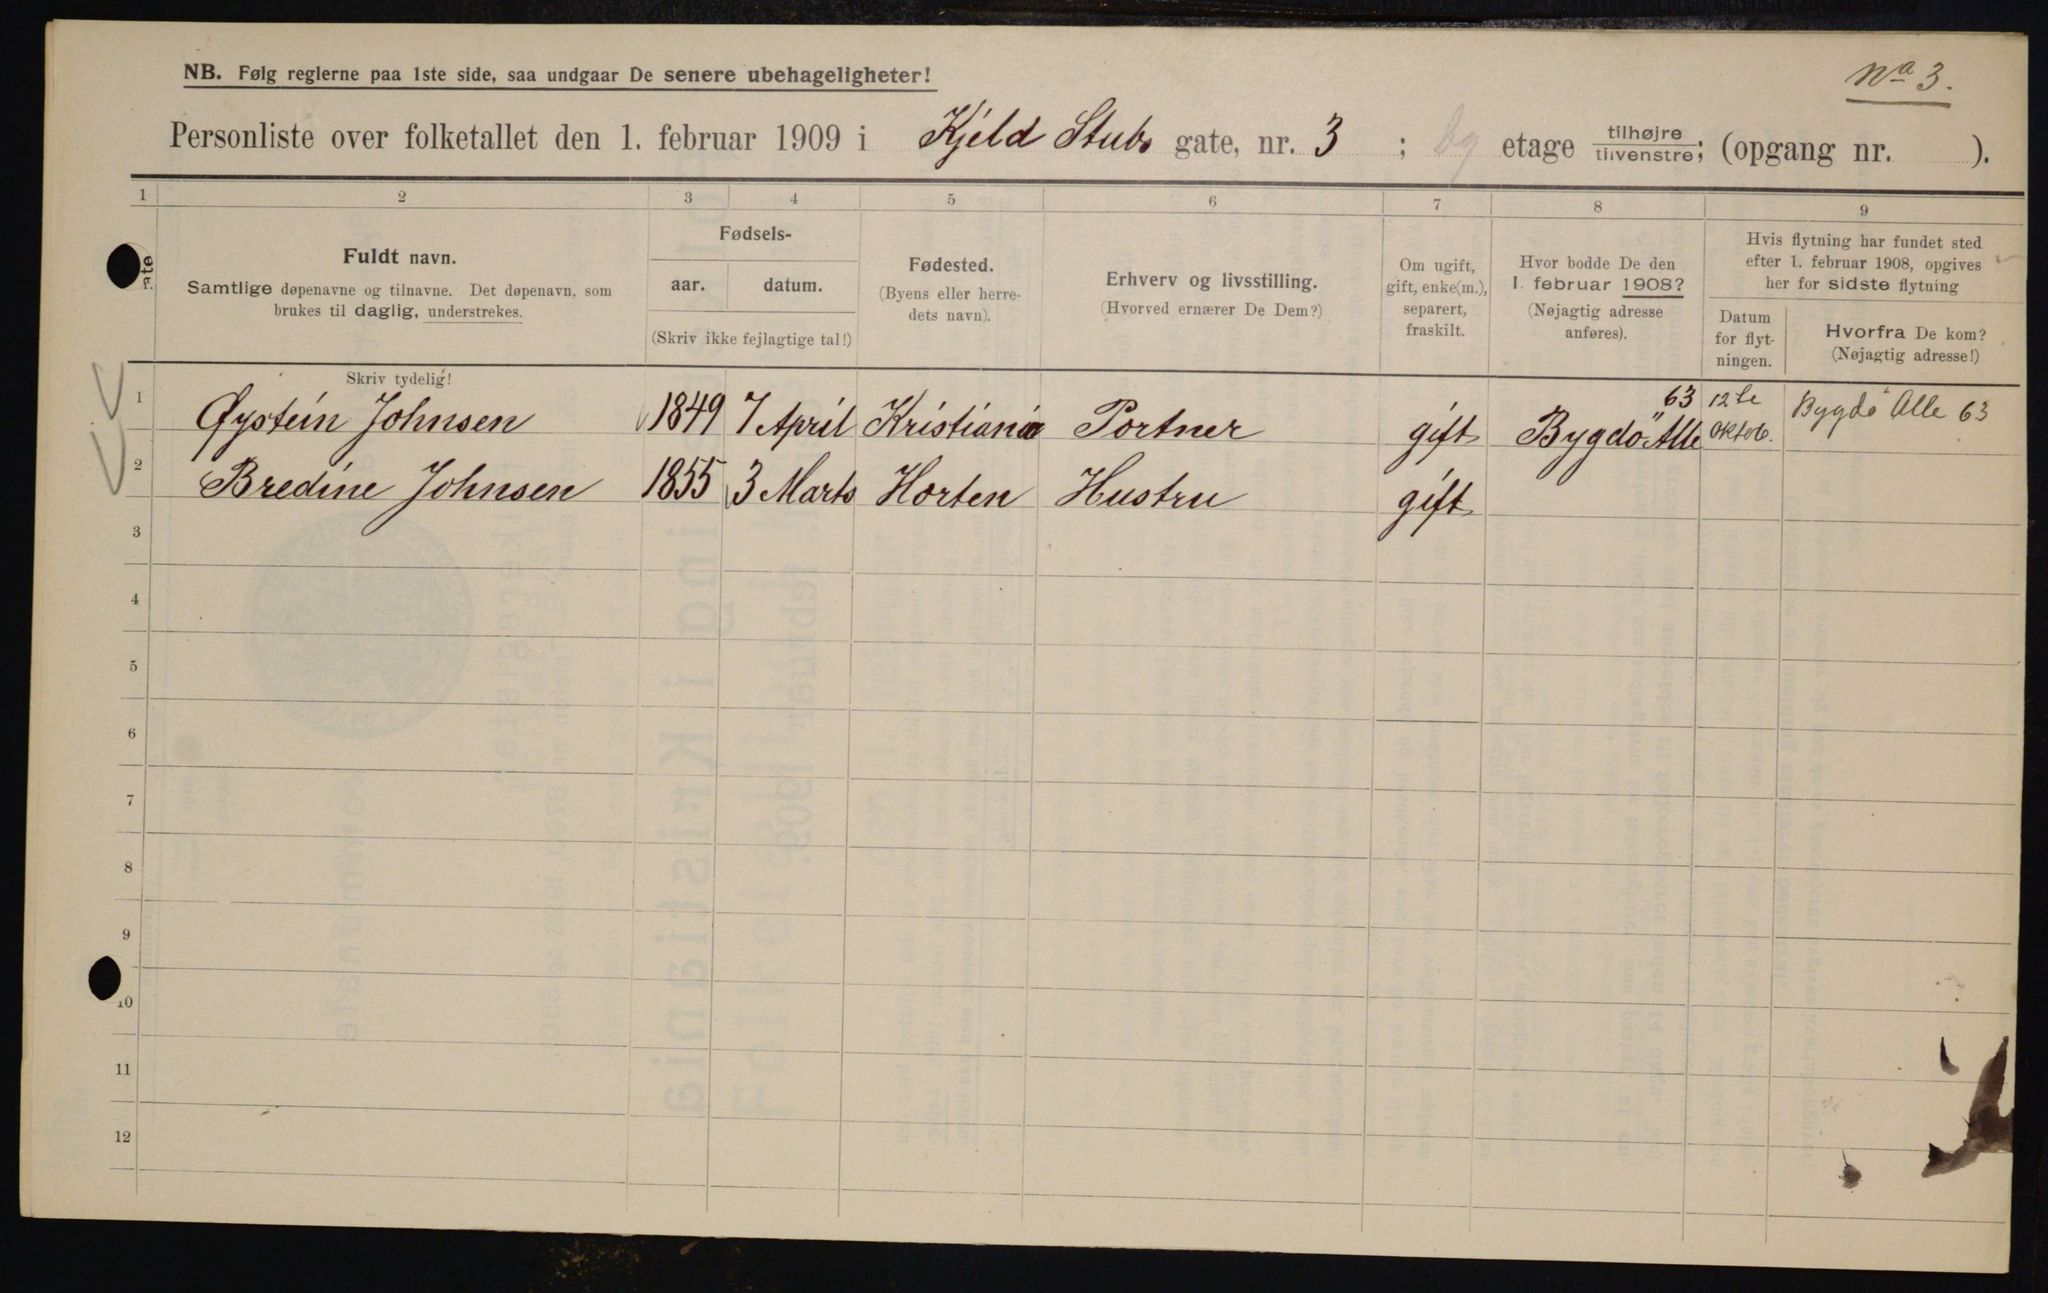 No 3.
NB. Følg reglerne paa 1ste side, saa undgaar De senere ubehageligheter!
Personliste over folketallet den 1. februar 1909 i Kjeld Stubs gate, nr. 3 ; etage tilhøjre / tilvenstre; (opgang nr. ).
1 2 3 4 5 6 7 8 9
Fuldt navn.
Samtlige døpenavne og tilnavne. Det døpenavn, som
brukes til daglig, understrekes.
Skriv tydelig!
Fødsels-
aar. datum.
(Skriv ikke fejlagtige tal!)
Fødested.
(Byens eller herre-
dets navn).
Erhverv og livsstilling.
(Hvorved ernærer De Dem?)
Om ugift,
gift, enke(m.),
separert,
fraskilt.
Hvor bodde De den
1. februar 1908?
(Nøjagtig adresse
anføres).
Hvis flytning har fundet sted
efter 1. februar 1908, opgives
her for sidste flytning
Datum
for flyt-
ningen.
Hvorfra De kom?
(Nøjagtig adresse!)
1 Øystein Johnsen 1849 7 April Kristiania Portner gift Bygdö Alle 63 12te Oktob. Bygdö Alle 63
2 Bredine Johnsen 1855 3 Marts Horten Hustru gift
3
4
5
6
7
8
9
10
11
12